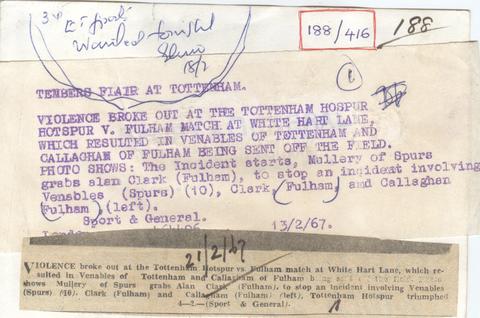 188/416
188
Wanted tonight
18/2
1
TEMBERS FLAIR AT TOTTENHAM.
VIOLENCE BROKE OUT AT THE TOTTENHAM HOSPUR
HOTSPUR V. FULHAM MATCH AT WHITE HART LANE,
WHICH RESULTED IN VENABLES OF TOTTENHAM AND
CALLAGHAM OF FULHAM BEING SENT OFF THE FIELD.
PHOTO SHOWS: The Incident starts, Mullery of Spurs
grabs alan Clark (Fulham), to stop an incident involving
Venables (Spurs) (10), Clark, (Fulham) and Callaghan
Fulham) (left).
Sport & General. 13/2/67.
London
21/2/67
VIOLENCE broke out at the Tottenham Hotspur vs. Fulham match at White Hart Lane, which re-
sulted in Venables of Tottenham and Callagham of Fulham being
shows Mullery of Spurs grabs Alan Clark (Fulham), to stop an incident involving Venables
(Spurs) (10), Clark (Fulham) and Callagham (Fulham) (left), Tottenham Hotspur triumphed
4—2.—(Sport & General).